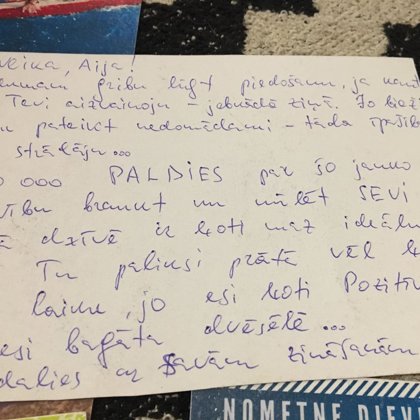 Aija!
gribu lūgt piedošanu, ja
Tevi aizvainoju - jebkādā ziņā. Jo bieži
pateikt nedomādami - tāda īpašība
strādāju...
ooo PALDIES par šo jauko
braukt un mīlēt SEVI
dzīvē ir ļoti maz ideālu
Tu paliksi prātā vēl
laiku, jo esi ļoti Pozitīv
esi bagāta dvēsele...
dalies ar savām zināšanām
NOMETNE DIE